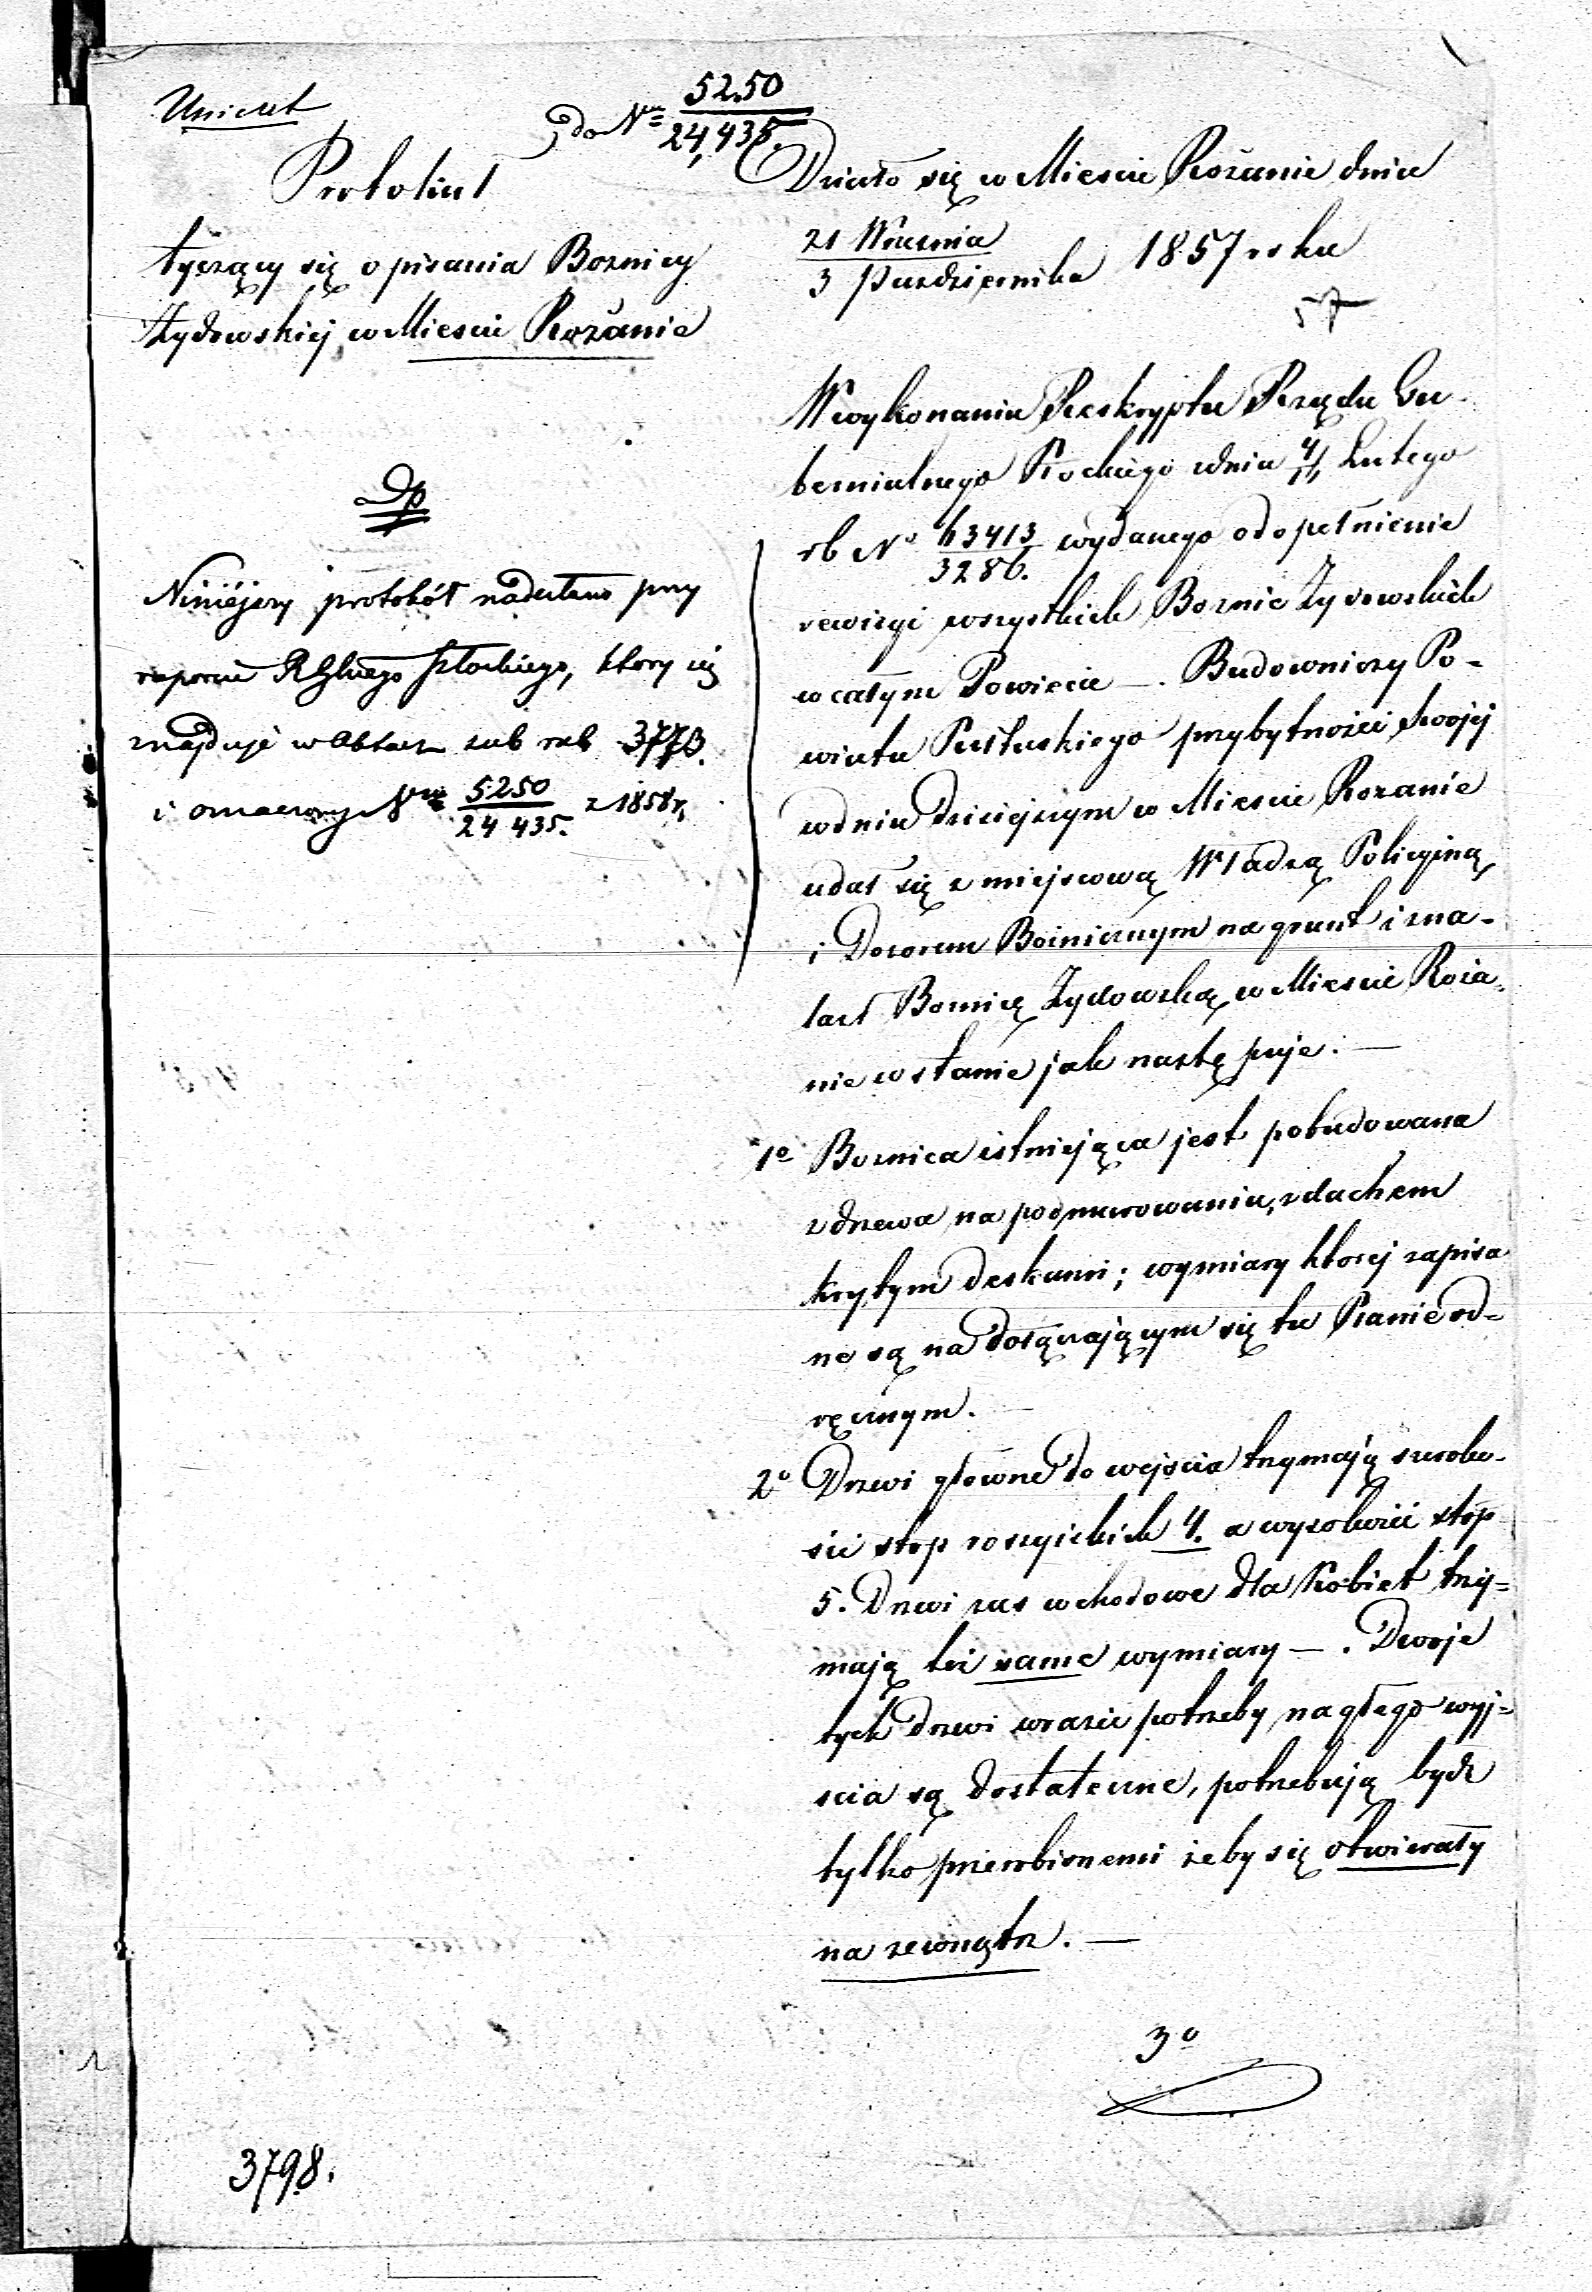 Uniewt
do Nru 5250/24,435.
Protokuł
tyczący się opisania Boznicy
Żydowskiej w Miescie Rożanie
Dp
Niniéjszy protokół nadesłano przy
raporcie Rząd Gub Płockiego, ktory się
znajduje w Aktach sub sub 3773.
i oznaczony Nrm 5250/24 435. z 1858 r.
Działo się w Miescie Rożanie dnia
21 Września/3 Pazdziernika 1857 roku
57
W wykonaniu Reskryptu Rządu Gu-
bernialnego Płockiego z dnia 4/ Lutego
rb No 63413/3286. wydanego o dopełnienie
rewizyi wszystkich Boznic Zydowskich
w całym Powiecie —. Budowniczy Po-
wiatu Pułtuskiego przybytności swojéj
w dniu dzisiejszym w Miescie Rozanie
udał się z miejscową Władzą Policyjną
i Dozorem Bożniczym na grunt i zna-
lazł Boznicę Zydowską w Miescie Roża-
nie w stanie jak następuje: —
1o Boznica istniejąca jest pobudowana
z drzewa na podmurowaniu, z dachem
krytym deskami; wymiary ktorej zapisa
ne są na dołączającym się tu Planie od=
ręcznym.
2o Drzwi głowne do wejscia trzymają szeroko-
sci stop rossyiskich 4. a wysokości stop
5. Drzwi zas wchodowe dla Kobiet trzy=
mają też same wymiary —. Dwoje
tych drzwi w razie potrzeby nagłego wyj=
scia są dostateczne, potrzebują bydź
tylko przerobionemi żeby się otwierały
na zewnątrz. —
3o
3798.
1